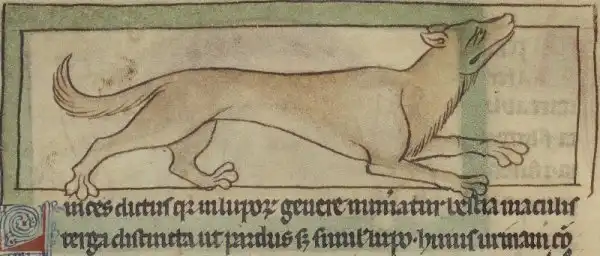 Linces dictus qꝛ in lupoꝝ genere numatur. bestia maculis
terga distincta ut pardus sꝫ simil' lupo. huius urinam cō